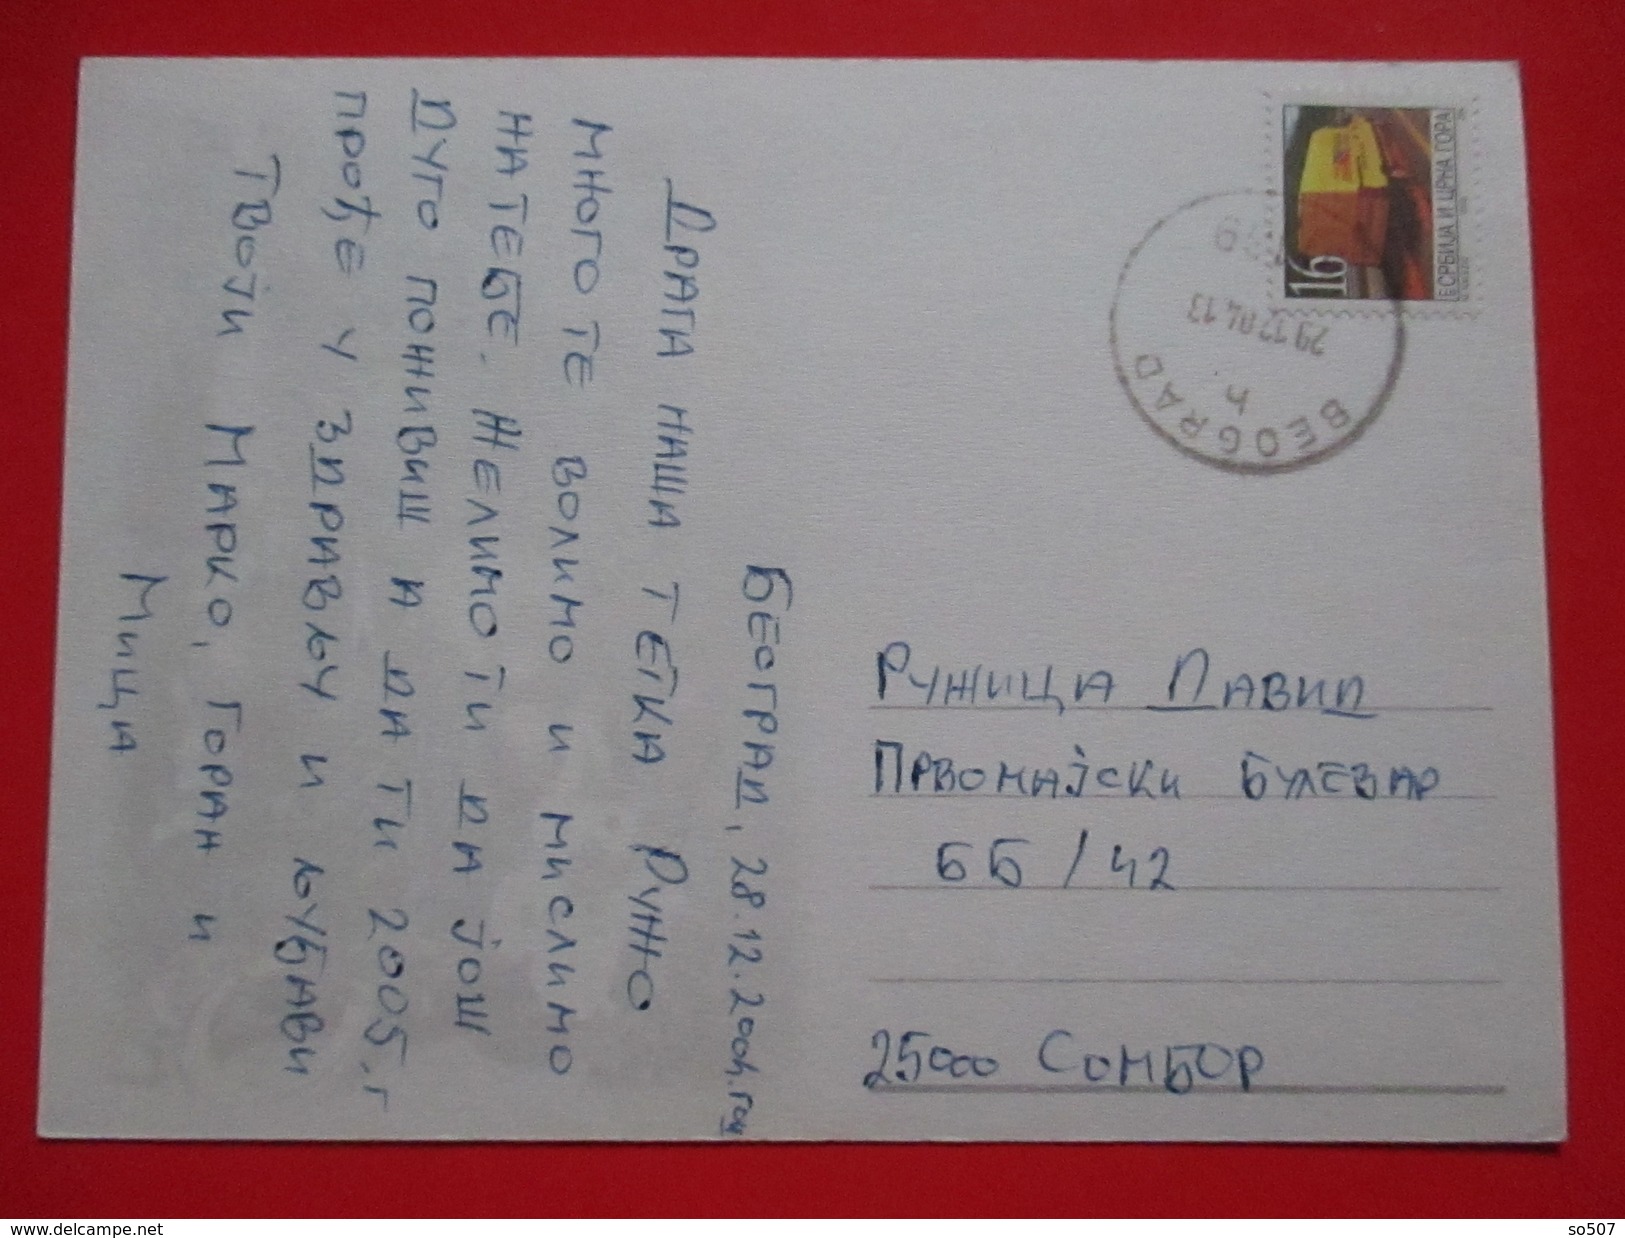 Београд, 28.12.2004.год
Драга наша тетка Ружо
много те волимо и мислимо
на тебе. Желимо ти да још
дуго поживиш и да ти 2005.г
прође у здрављу и љубави
Твоји Марко, Горан и
Мица
Ружица Давид
Првомајски булевар
ББ / 42
25000 Сомбор
16
СРБИЈА И ЦРНА ГОРА
BEOGRAD
29.12.04.13
delcampe.net
so507